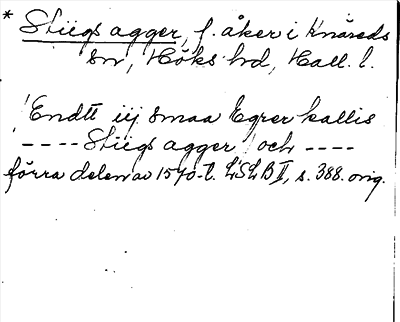 * Stiigs agger, f. åker i Knäreds
sn, Höks hd, Hall. l.
! Endtt iij smaa Egrer kallis
---- Stiigs agger ! och ----
förra delen av 1570-t. LSLB II, s. 388. orig.